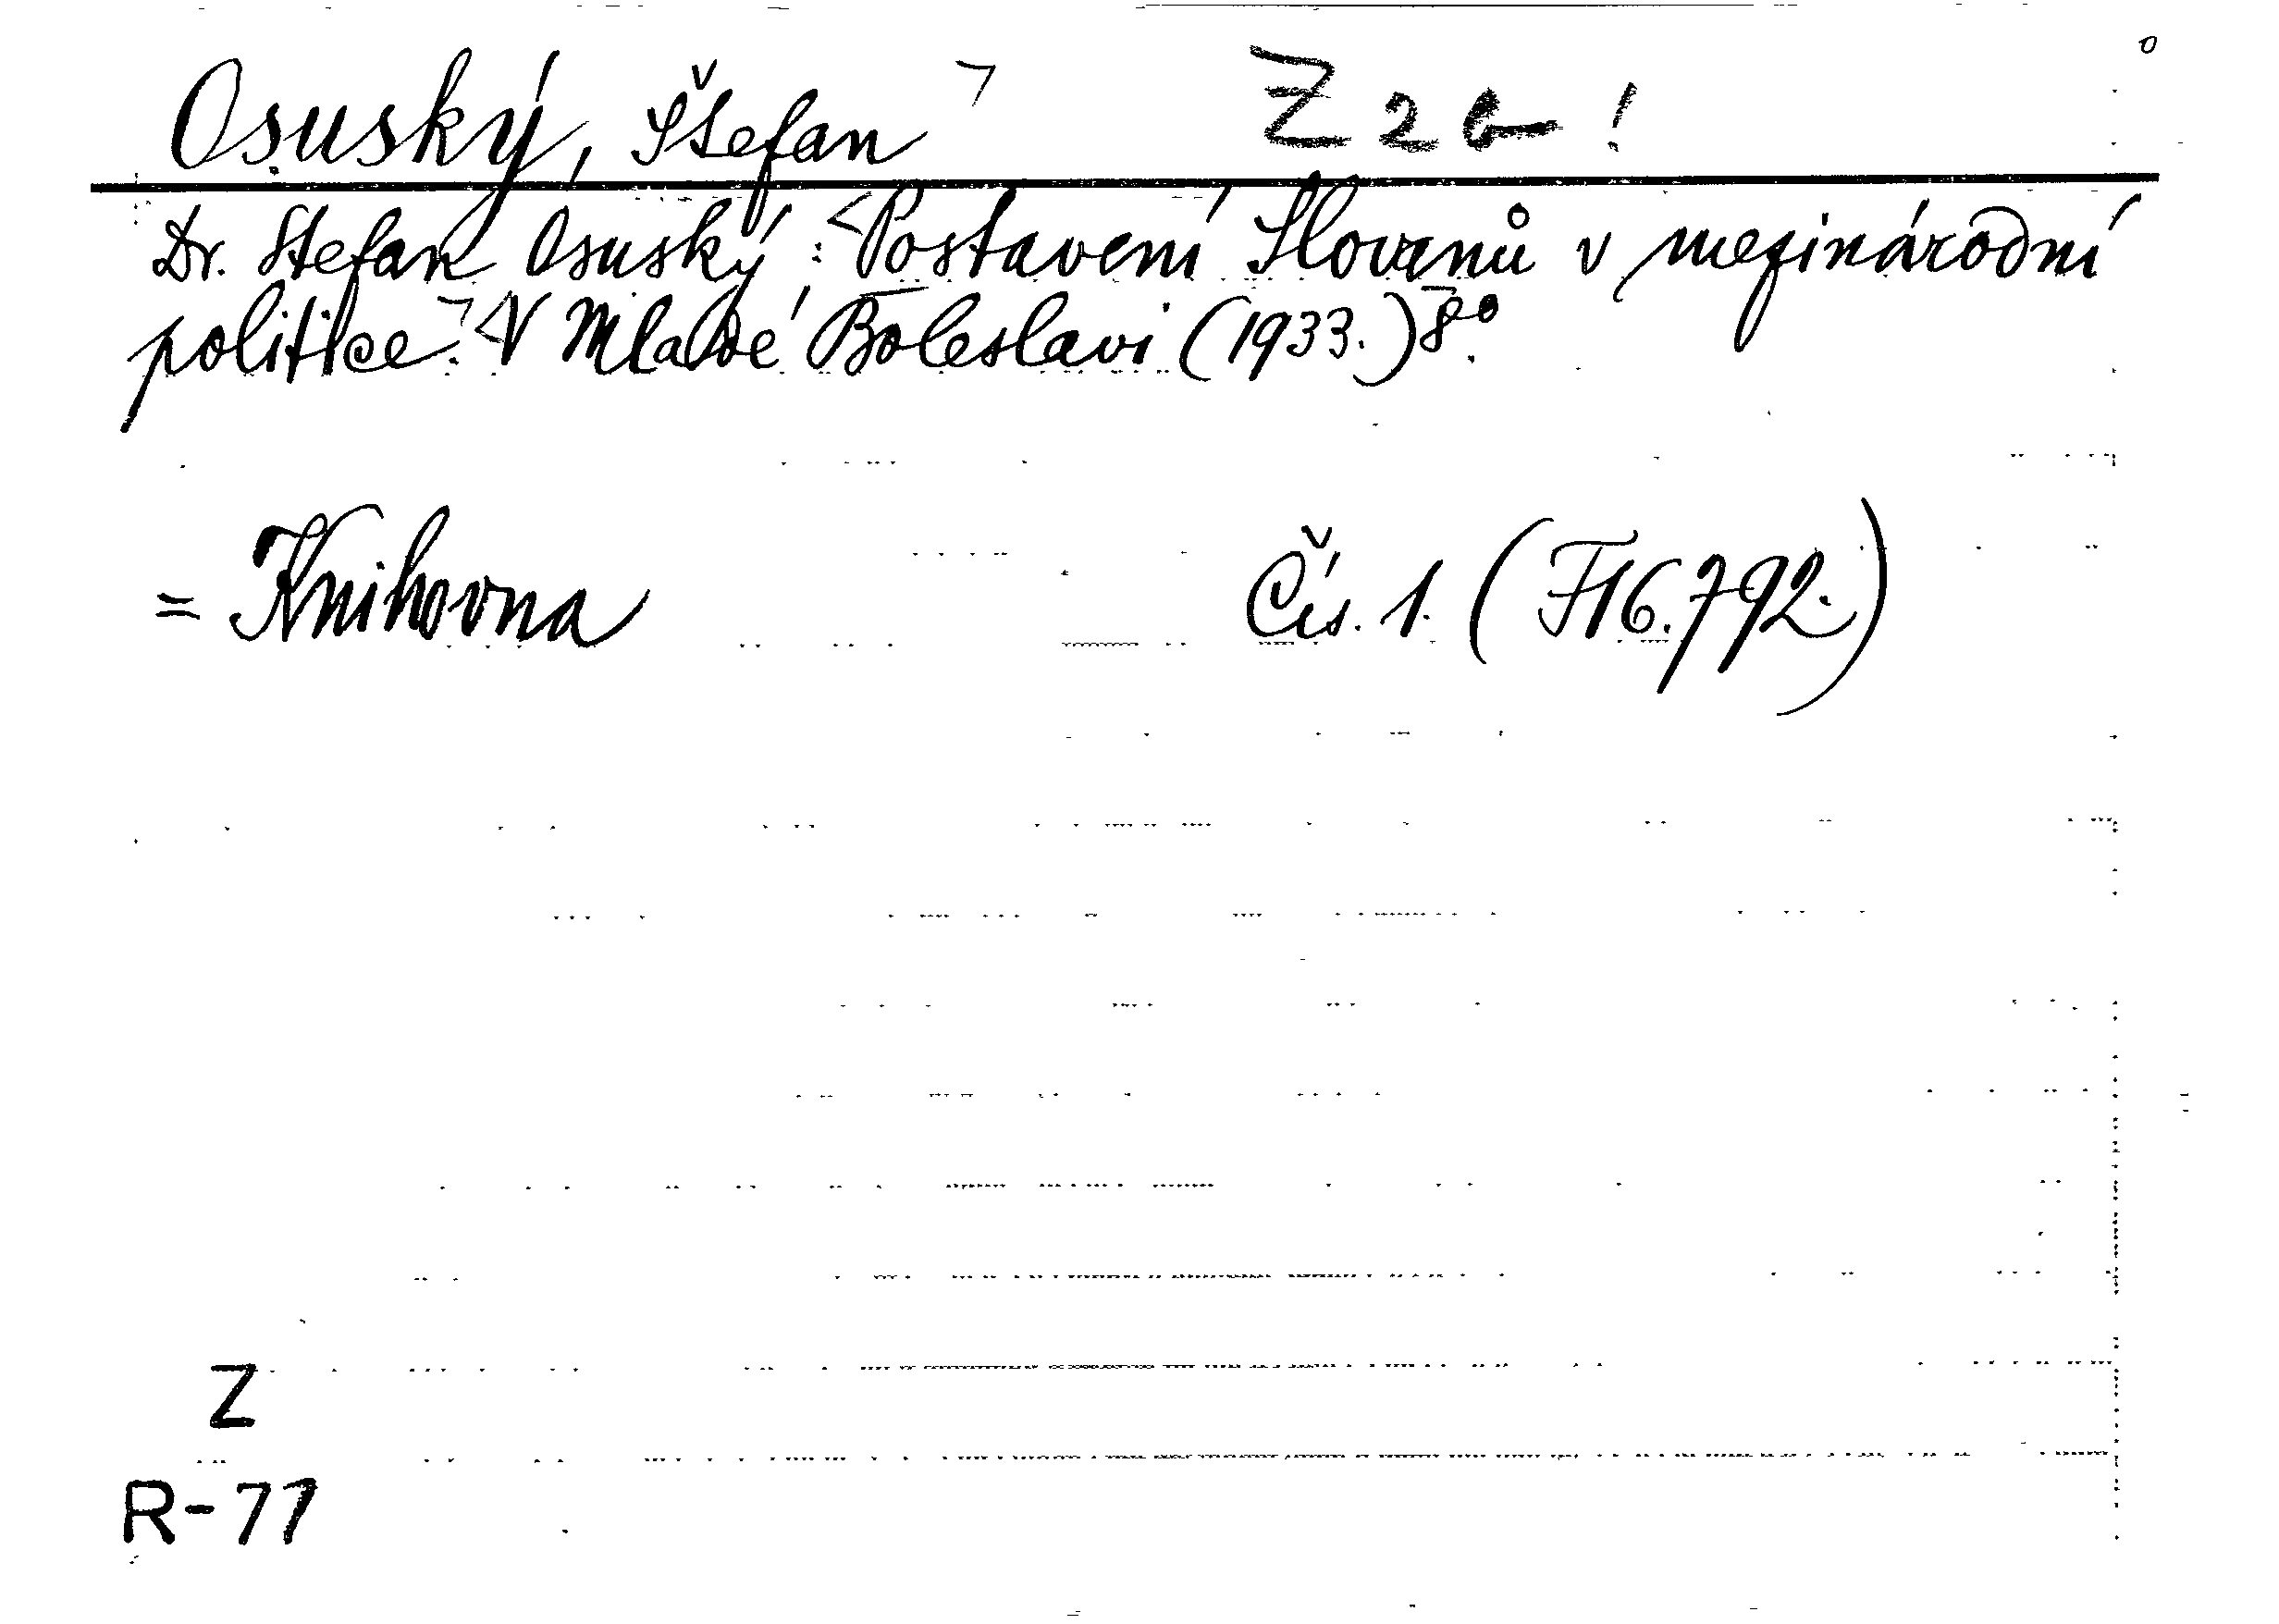 Osuský, Štefan Z 26 !
Dr. Stefan Osuský: Postavení Slovanů v mezinárodní
politice. V Mladé Boleslavi (1933.) 8°.
= Knihovna Čís. 1. (F 16.792.)
Z
R-77